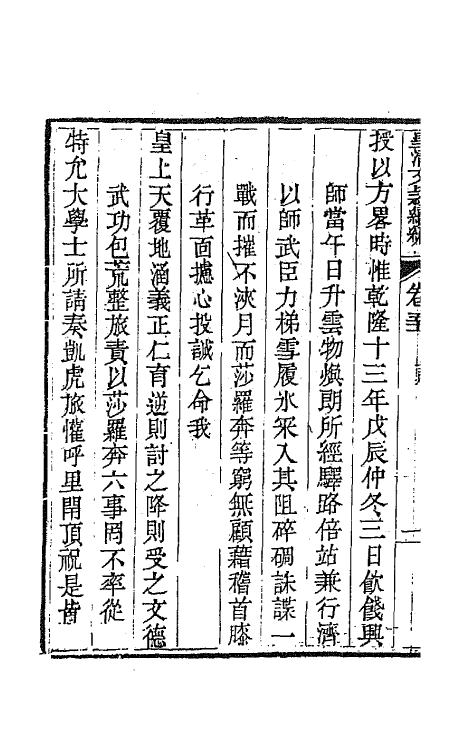 授以方畧時惟乾隆十三年戊辰仲冬三日飲餞興
師當午日升雲物煥朗所經驛路倍站兼行濟
以師武臣力梯雪履氷罙入其阻碎碉誅諜一
戰而摧不浹月而莎羅奔等窮無顧藉稽首膝
行革面攄心投誠乞命我
皇上天覆地涵義正仁育逆則討之降則受之文德
武功包荒整旅責以莎羅奔六事罔不率從
特允大學士所請奏凱虎旅懽呼里閈頂祝是皆